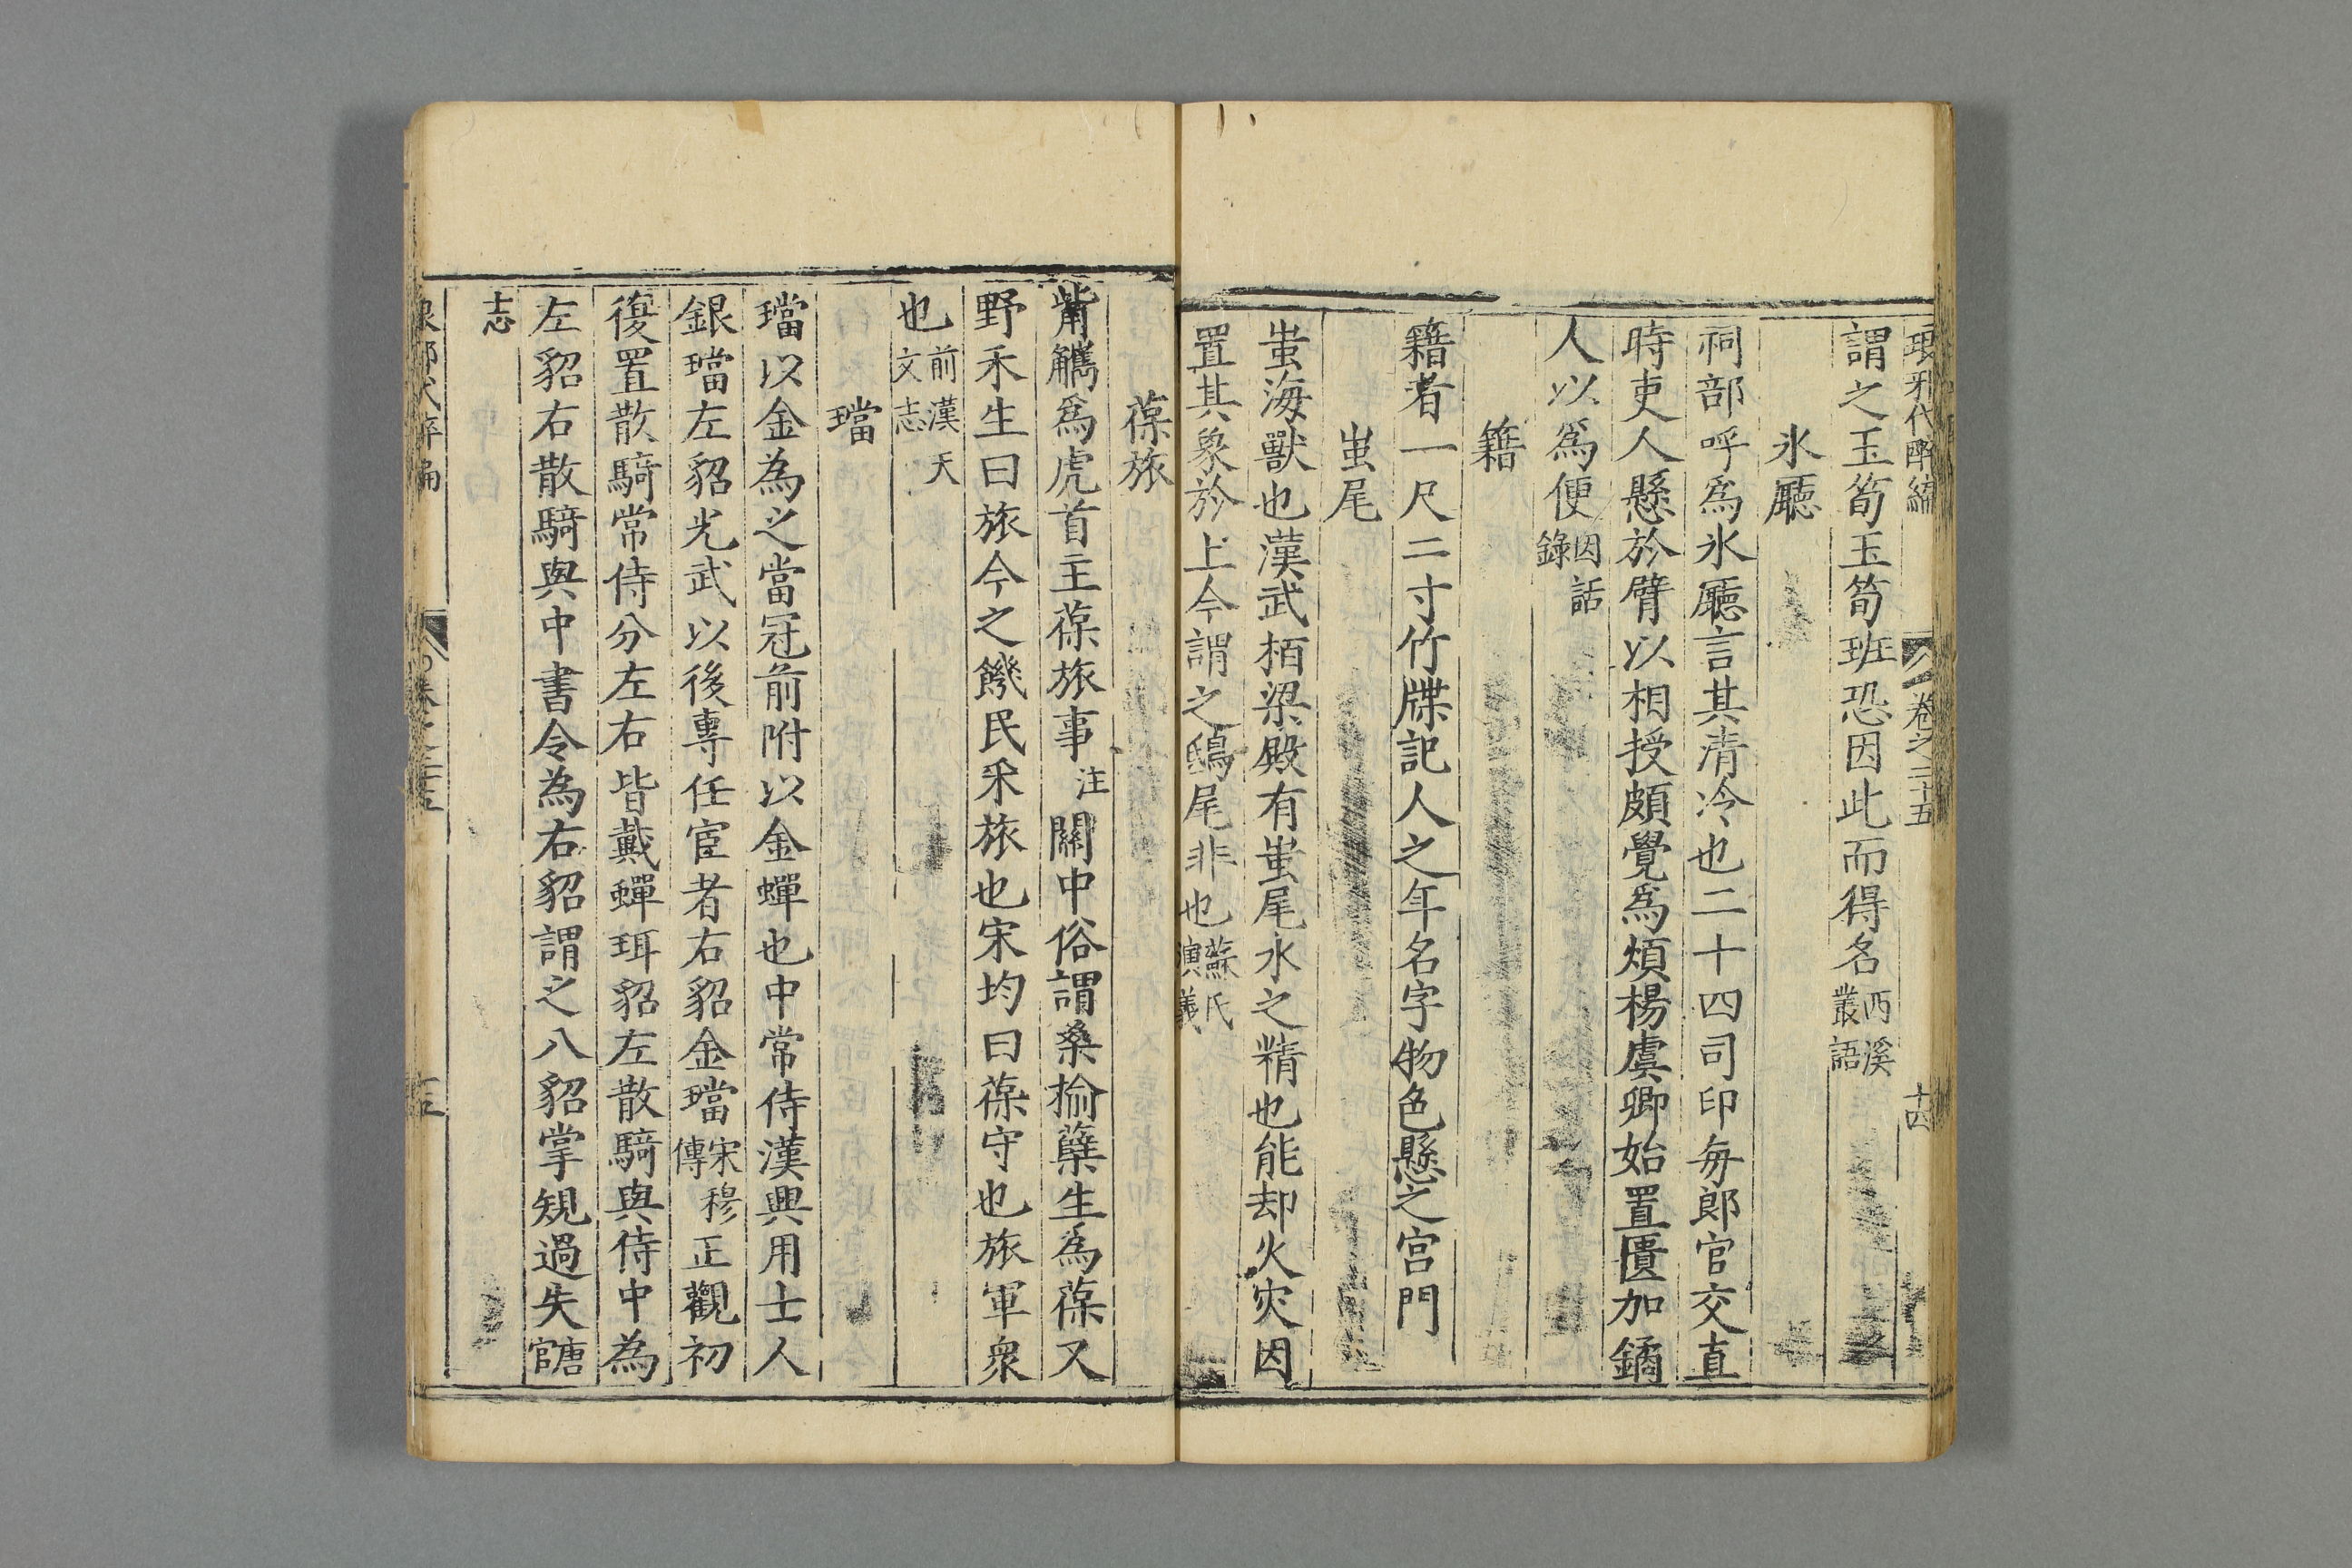 琅邪代醉編 卷之二十五 十四
謂之玉筍玉筍班恐因此而得名西溪叢語
氷廳
祠部呼爲氷廳言其清冷也二十四司印毎郎官交直
時吏人懸於臂以相授頗覺爲煩楊虞卿始置匱加鐍
人以爲便因話錄
籍
籍者一尺二寸竹牒記人之年名字物色懸之宫門
蚩尾
蚩海獸也漢武栢梁殿有蚩尾水之精也能却火灾因
置其象於上今謂之鴟尾非也蘇氏演義
葆旅
觜觿爲虎首主葆旅事注關中俗謂桑榆蘖生爲葆又
野禾生曰旅今之饑民采旅也宋均曰葆守也旅軍衆
也前漢天文志
璫
璫以金為之當冠前附以金蟬也中常侍漢興用士人
銀璫左貂光武以後專任宦者右貂金璫宋穆傳正觀初
復置散騎常侍分左右皆戴蟬珥貂左散騎與侍中為
左貂右散騎與中書令為右貂謂之八貂掌規過失唐官
志